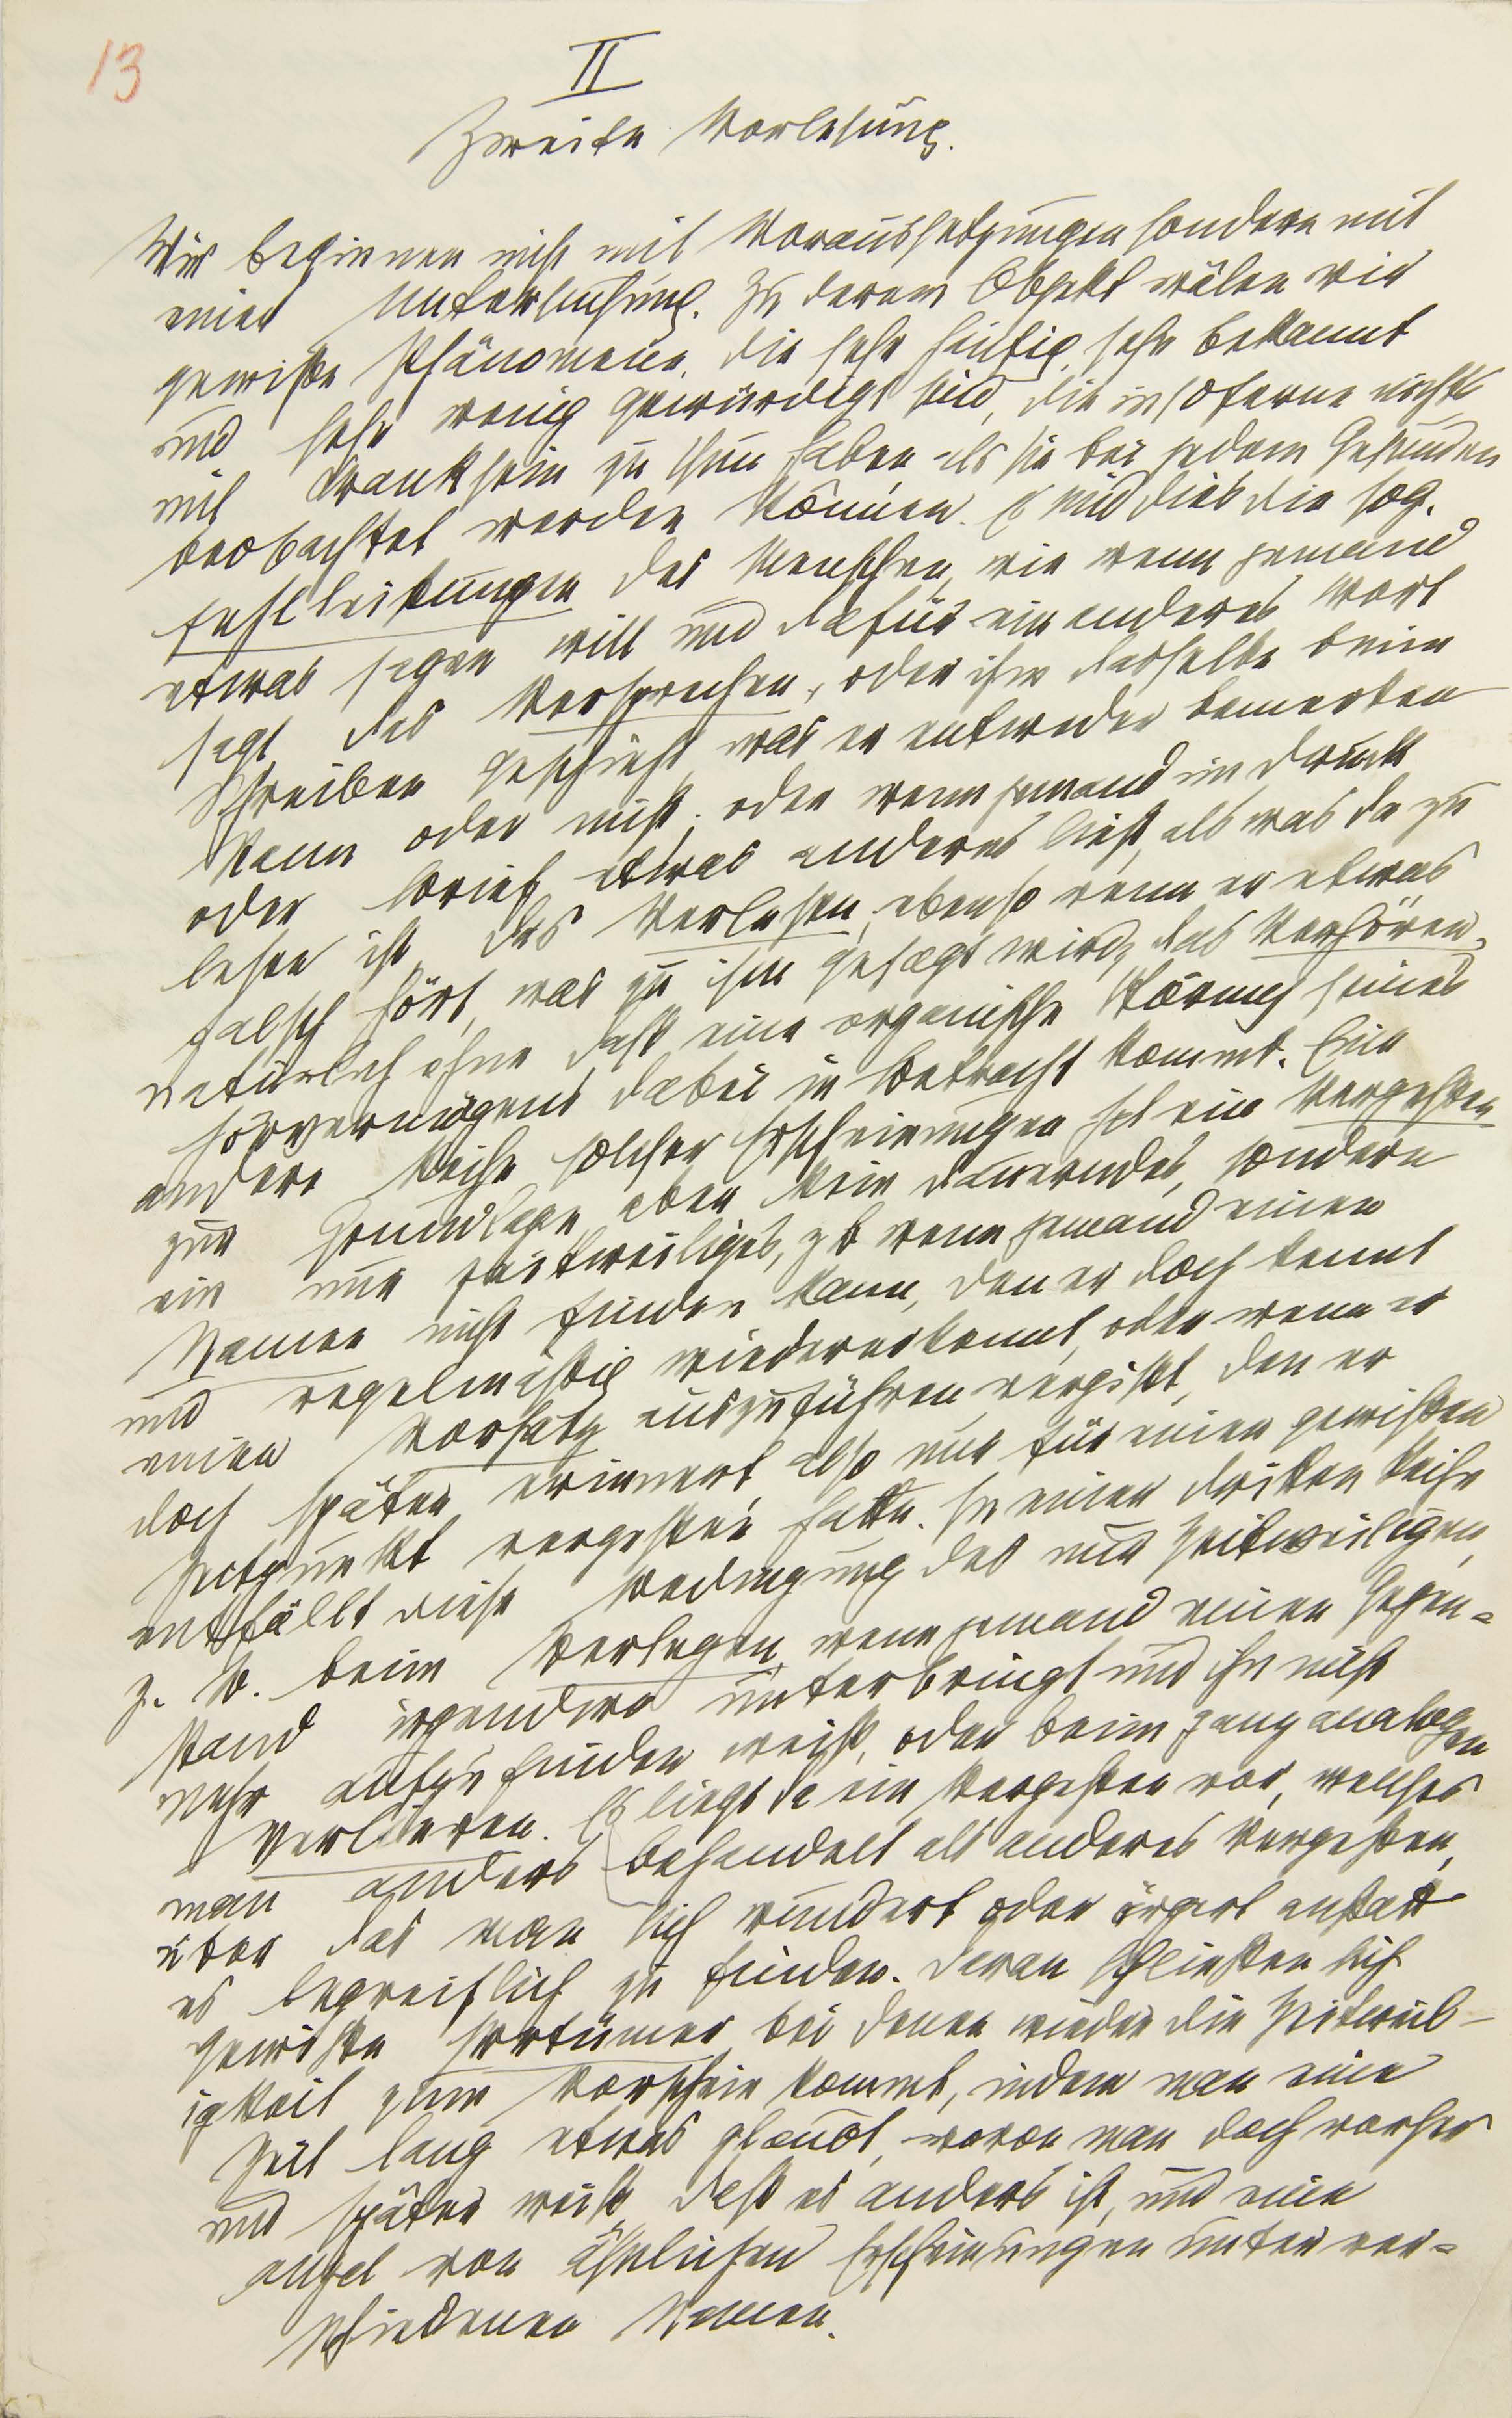 13
II
Zweite Vorlesung.
Wir beginnen nicht mit Voraussetzungen sondern mit
einer Untersuchung. Zu deren Objekt wälen wir
gewisse Phänomene, die sehr häufig, sehr bekannt
und sehr wenig gewürdigt sind, die insoferne nichts
mit Kranksein zu thun haben, als sie bei jedem Gesunden
beobachtet werden können. Es sind dies die sog.
Fehlleistungen des Menschen, wie wenn jemand
etwas sagen will und dafür ein anderes Wort
sagt, das Versprechen, oder ihm dasselbe beim
Schreiben geschieht, was er entweder bemerken
kann oder nicht; oder wenn jemand im Druck
oder Brief etwas anderes liest, als was da zu
lesen ist, das Verlesen; ebenso wenn er etwas
falsch hört, was zu ihm gesagt wird, das Verhören,
natürlich ohne dass eine organische Störung seines
Hörvermögens dabei in Betracht kommt. Eine
andere Reihe solcher Erscheinungen hat ein Vergessen
zur Grundlage, aber kein dauerndes, sondern
ein nur zeitweiliges, z b wenn jemand einen
Namen nicht finden kann, den er doch kennt
und regelmässig wiedererkennt, oder wenn er
einen Vorsatz auszuführen vergisst, den er
doch später erinnert, also nur für einen gewissen
Zeitpunkt vergessen hatte. In einer dritten Reihe
entfällt diese Bedingung des nur Zeitweiligen,
z. B. beim Verlegen, wenn jemand einen Gegen-
stand irgendwo unterbringt und ihn nicht
mehr aufzufinden weiss, oder beim ganz analogen
Verlieren. Es liegt da ein Vergessen vor, welches
man anders behandelt als anderes Vergessen,
über das man sich wundert oder ärgert anstatt
es begreiflich zu finden. Daran schliessen sich
gewisse Irrtümer, bei denen wieder die Zeitweil-
igkeit zum Vorschein kommt, indem man eine
Zeit lang etwas glaubt, wovon man doch vorher
und später weiss, dass es anders ist, und eine
Anzal von ähnlichen Erscheinungen unter ver-
schiedenen Namen.